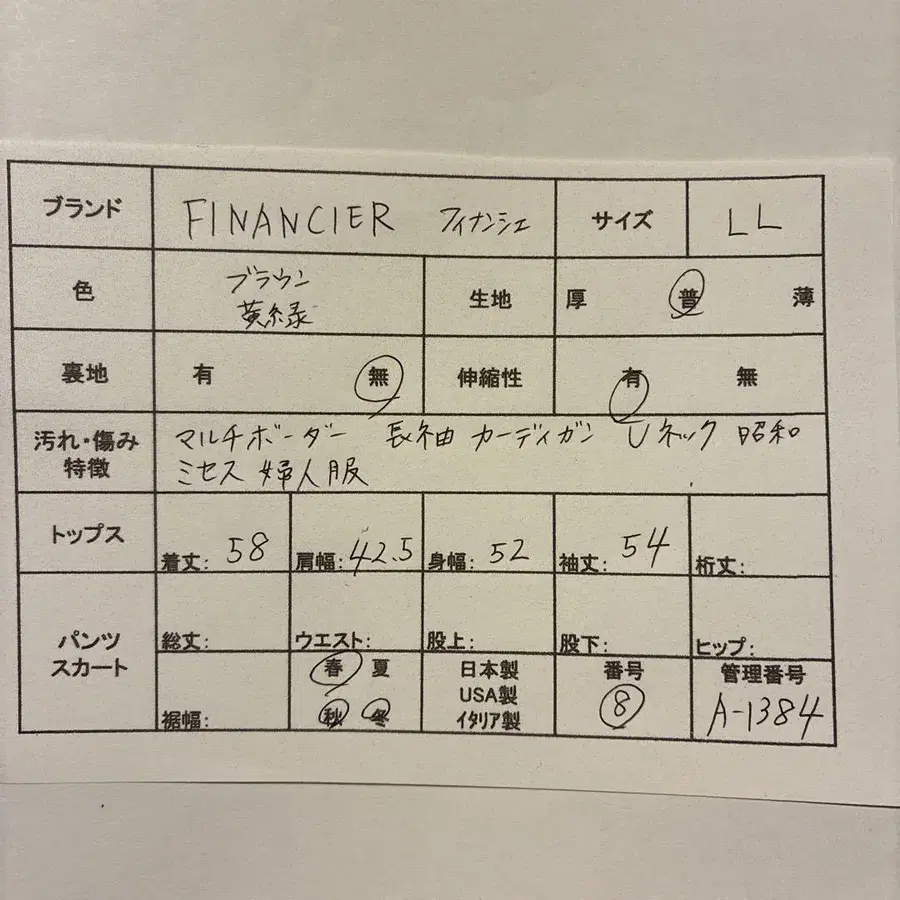 ブランド FINANCIER フィナンシェ サイズ LL
色 ブラウン 生地 厚 普 薄
黄緑
裏地 有 無 伸縮性 有 無
汚れ・傷み マルチボーダー 長袖 カーディガン Uネック 昭和
特徴 ミセス 婦人服
トップス 着丈: 58 肩幅: 42.5 身幅: 52 袖丈: 54 裄丈:
パンツ 総丈: ウエスト: 股上: 股下: ヒップ:
スカート 春 夏 日本製 番号 管理番号
USA製
裾幅: 秋 冬 イタリア製 8 A-1384